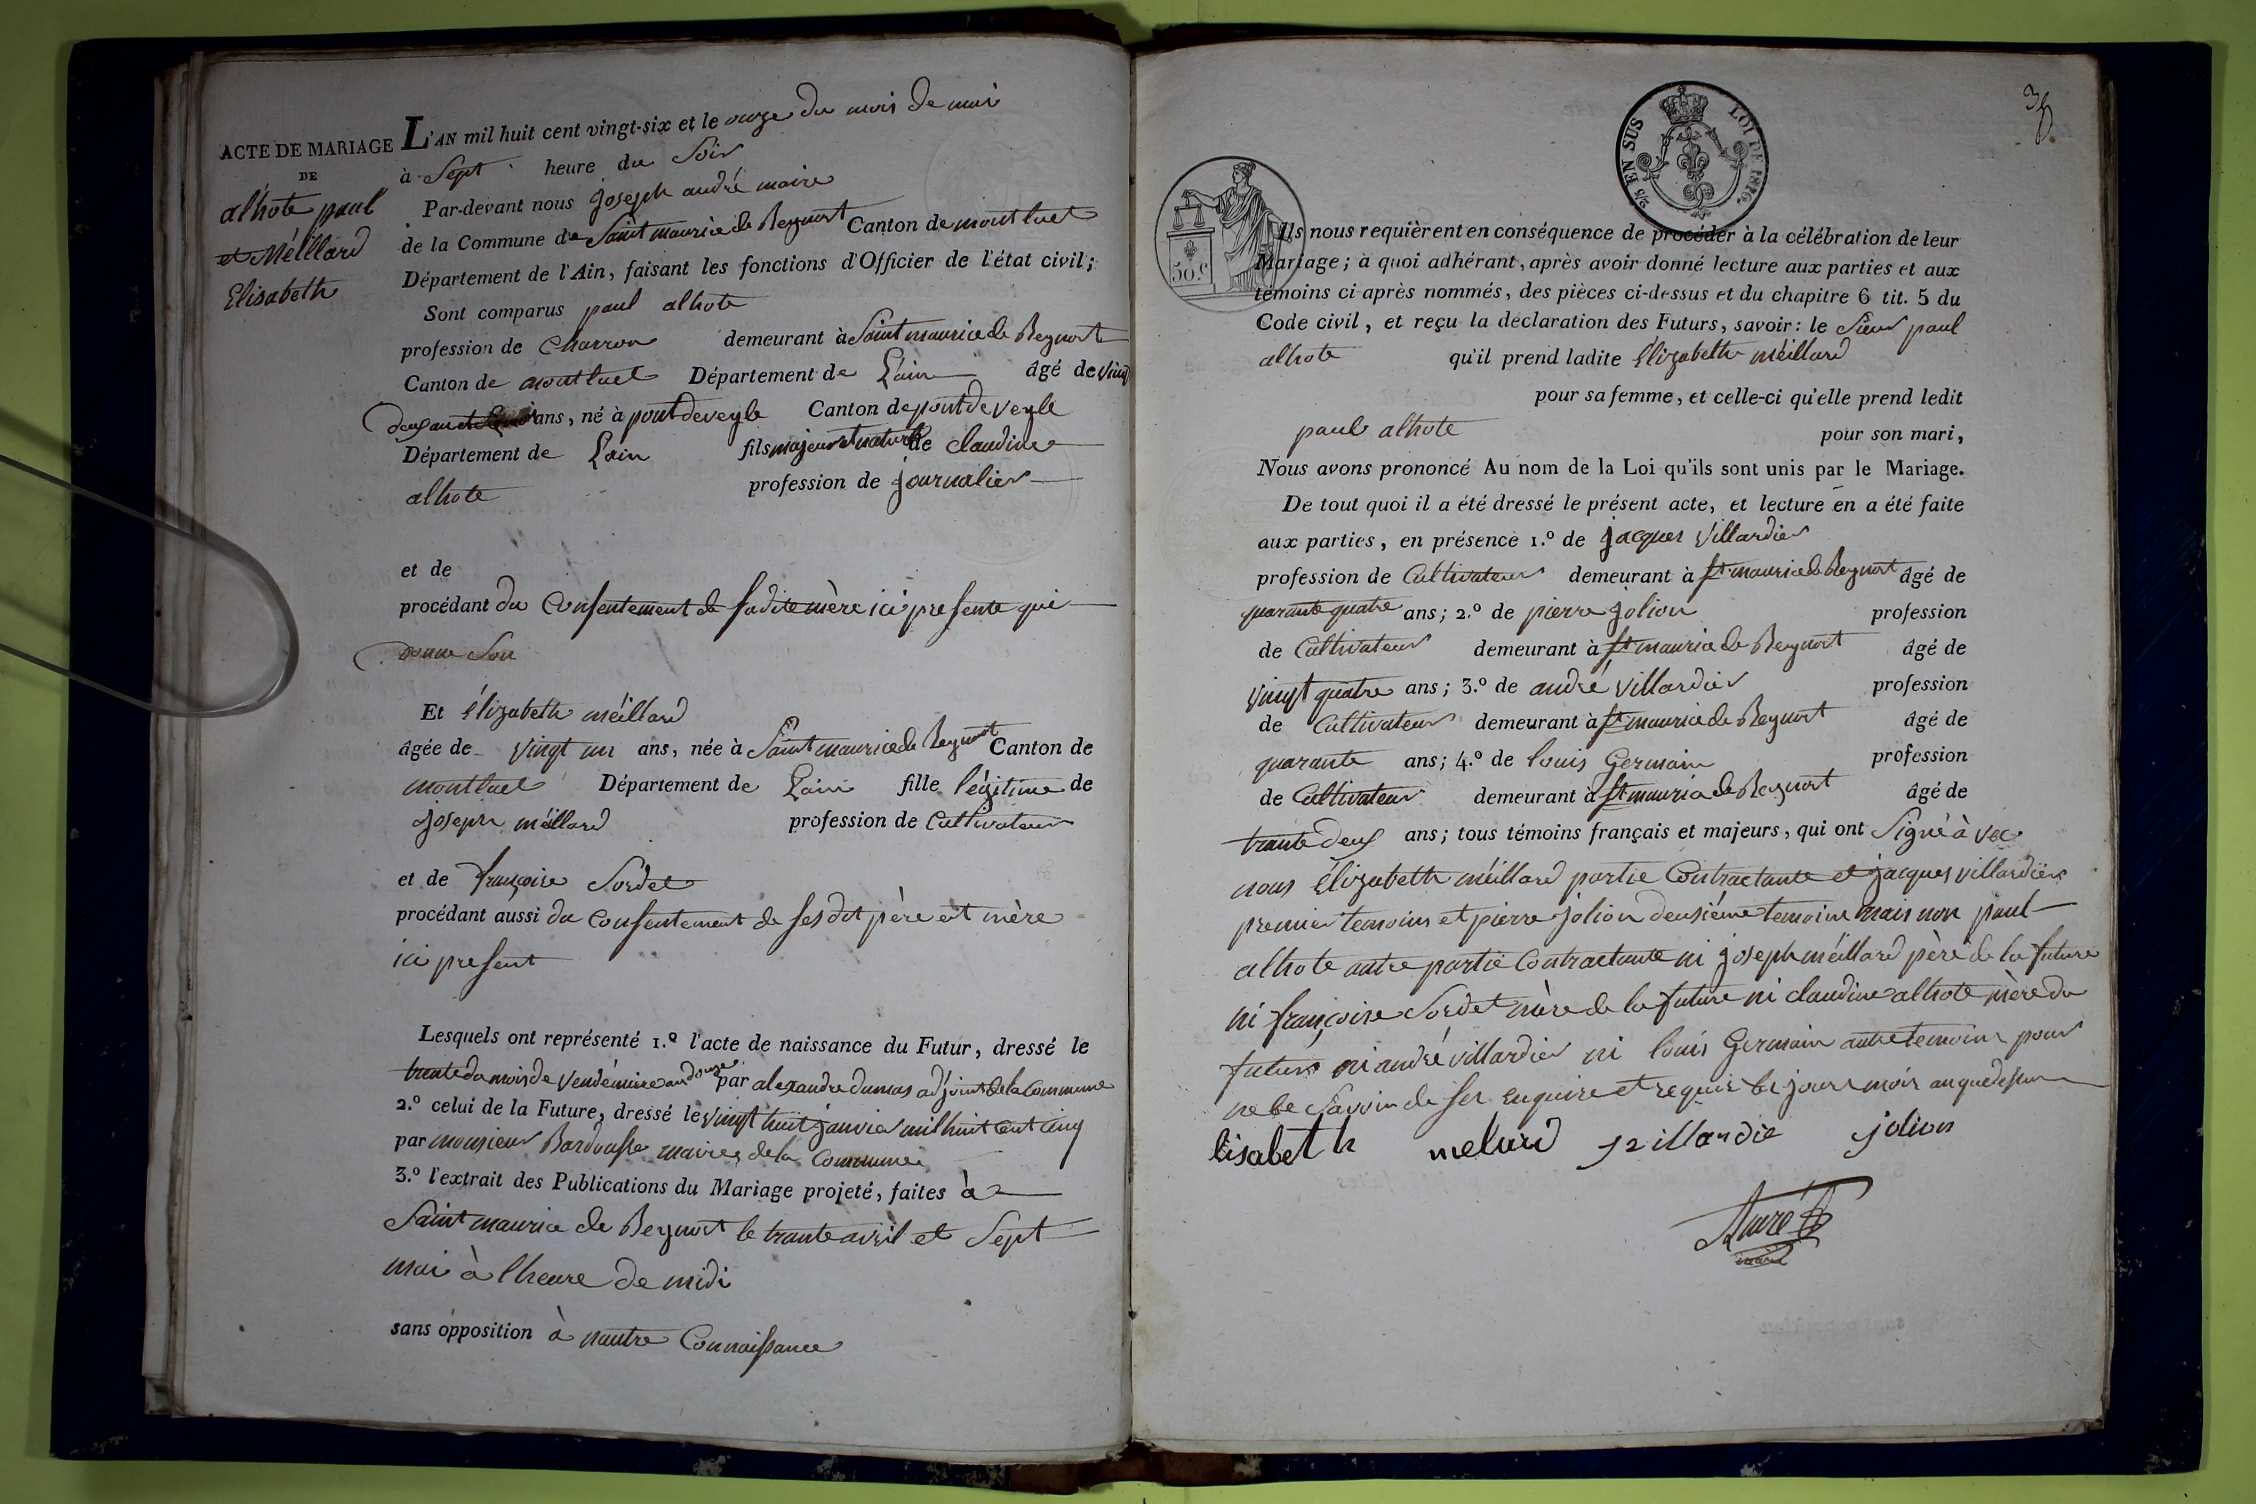 ACTE DE MARIAGE
DE
alhote paul
et Méillard
Elisabeth
L'AN mil huit cent vingt-six et le onze du mois de mai
à Sept heure du Soir
Par-devant nous joseph andré maire
de la Commune de Saint maurice de Beynost Canton de montluel
Département de l'Ain, faisant les fonctions d'Officier de l'état civil;
Sont comparus paul alhote
profession de Charron demeurant à Saint maurice de Beynost
Canton de montluel Département de Lain âgé de vingt
deux ans, né à pontdeveyle Canton de pontdeveyle
Département de Lain fils majeur et naturel de claudine
alhote profession de journalier
et de
procédant du Consentement de sadite mère ici presente qui
donne Son
Et élizabeth méillard
âgée de vingt un ans, née à Saint maurice de Beynost Canton de
montluel Département de Lain fille légitime de
joseph méillard profession de Cultivateur
et de françoise Sordet
procédant aussi du Consentement de ses dit père et mère
ici present
Lesquels ont représenté 1.º l'acte de naissance du Futur, dressé le
trante du mois de vendémiaire an douze par alexandre dumas adjoint de la Commune
2.º celui de la Future, dressé le vingt huit janvier mil huit cent cinq
par monsieur Bardousse maire de la Commune
3.º l'extrait des Publications du Mariage projeté, faites à
Saint maurice de Beynost le trante avril et Sept
mai à lheure de midi
sans opposition à nautre Connaissance
38.
2/5 EN SUS LOI DE 1816.
50.c
Ils nous requièrent en conséquence de procéder à la célébration de leur
Mariage; à quoi adhérant, après avoir donné lecture aux parties et aux
témoins ci après nommés, des pièces ci-dessus et du chapitre 6 tit. 5 du
Code civil, et reçu la déclaration des Futurs, savoir: le Sieur paul
alhote qu'il prend ladite Elizabeth méillard
pour sa femme, et celle-ci qu'elle prend ledit
paul alhote pour son mari,
Nous avons prononcé Au nom de la Loi qu'ils sont unis par le Mariage.
De tout quoi il a été dressé le présent acte, et lecture en a été faite
aux parties, en présence 1.º de jacques Villardier
profession de Cultivateur demeurant à St maurice de Beynost âgé de
quarante quatre ans; 2.º de pierre jolion profession
de Cultivateur demeurant à St maurice de Beynost âgé de
vingt quatre ans; 3.º de andré villardier profession
de Cultivateur demeurant à St maurice de Beynost âgé de
quarante ans; 4.º de louis Germain profession
de Cultivateur demeurant à St maurice de Beynost âgé de
trante deux ans; tous témoins français et majeurs, qui ont Signé à vec
nous élizabeth méillard partie Contractante et jacques villardier
premier temoins et pierre jolion deusiéme temoins mais non paul
alhote autre partie Contractante ni joseph méillard père de la future
ni françoise Sordet mère de la future ni claudine alhote mère du
futur ni andré villardier ni louis Germain autre temoins pour
ne le Savoir de ser enquire et requis les jours mois an que dessus
lisabeth melard villardie jolion
André
maire